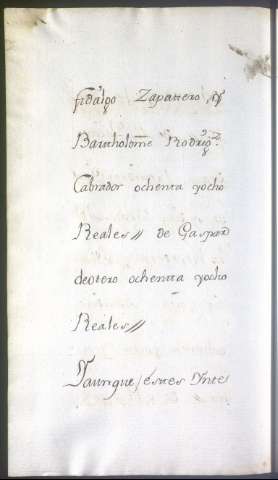 fidalgo Zapattero, y
Bartholome Rodrigz
Labrador ochenta yocho
Reales// de Gaspar
deotero ochenta yocho
Reales//
Yaunque estes Ynte